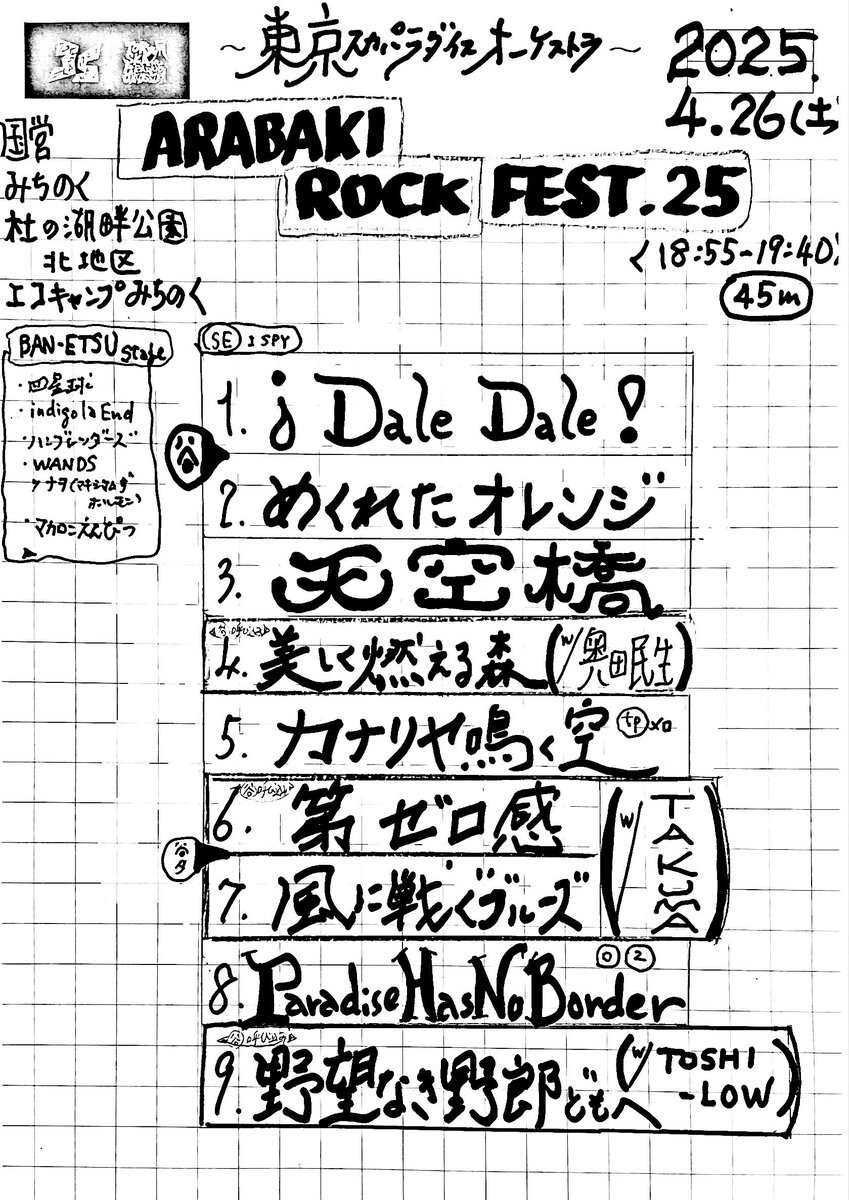 ～東京スカパラダイスオーケストラ～
2025.
4.26(土)
ARABAKI
ROCK FEST.25
国営
みちのく
杜の湖畔公園
北地区
エコキャンプみちのく
＜18:55-19:40＞
45m
BAN-ETSU Stage
・四星球
・indigo la End
・ハンブレッダーズ
・WANDS
ナヲ(マキシマム ザ
ホルモン)
・マカロニえんぴつ
SE I SPY
1. ¡ Dale Dale !
谷
2. めくれたオレンジ
3. 天空橋
谷呼び込み
4. 美しく燃える森 (w/奥田民生)
5. カナリヤ鳴く空 tp×0
谷呼び込み
6. 第ゼロ感
谷
7. 風に戦ぐブルーズ
(w/TAKUMA)
8. Paradise Has No Border
0 2
谷呼び込み
9. 野望なき野郎どもへ (w/TOSHI
-LOW)